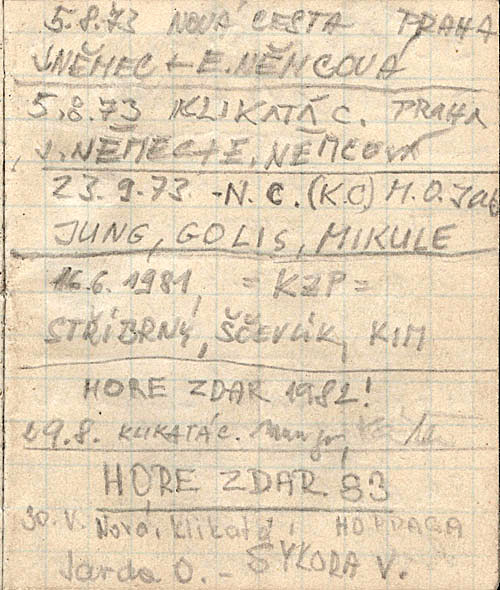 5.8.73 NOVÁ CESTA PRAHA
J.NĚMEC + E.NĚMCOVÁ
5.8.73 KLIKATÁ C. PRAHA
J.NĚMEC + E.NĚMCOVÁ
23.9.73 -N.C.(K.C) M.O.
JUNG, GOLIS, MIKULE
16.6.1981, = KZP =
STŘÍBRNÝ, ŠČEVLÍK, KIM
HORE ZDAR 1982!
29.8. KLIKATÁ C.
HORE ZDAR 83
30.V. Nová, Klikatá
Jarda O. - SÝKORA V.